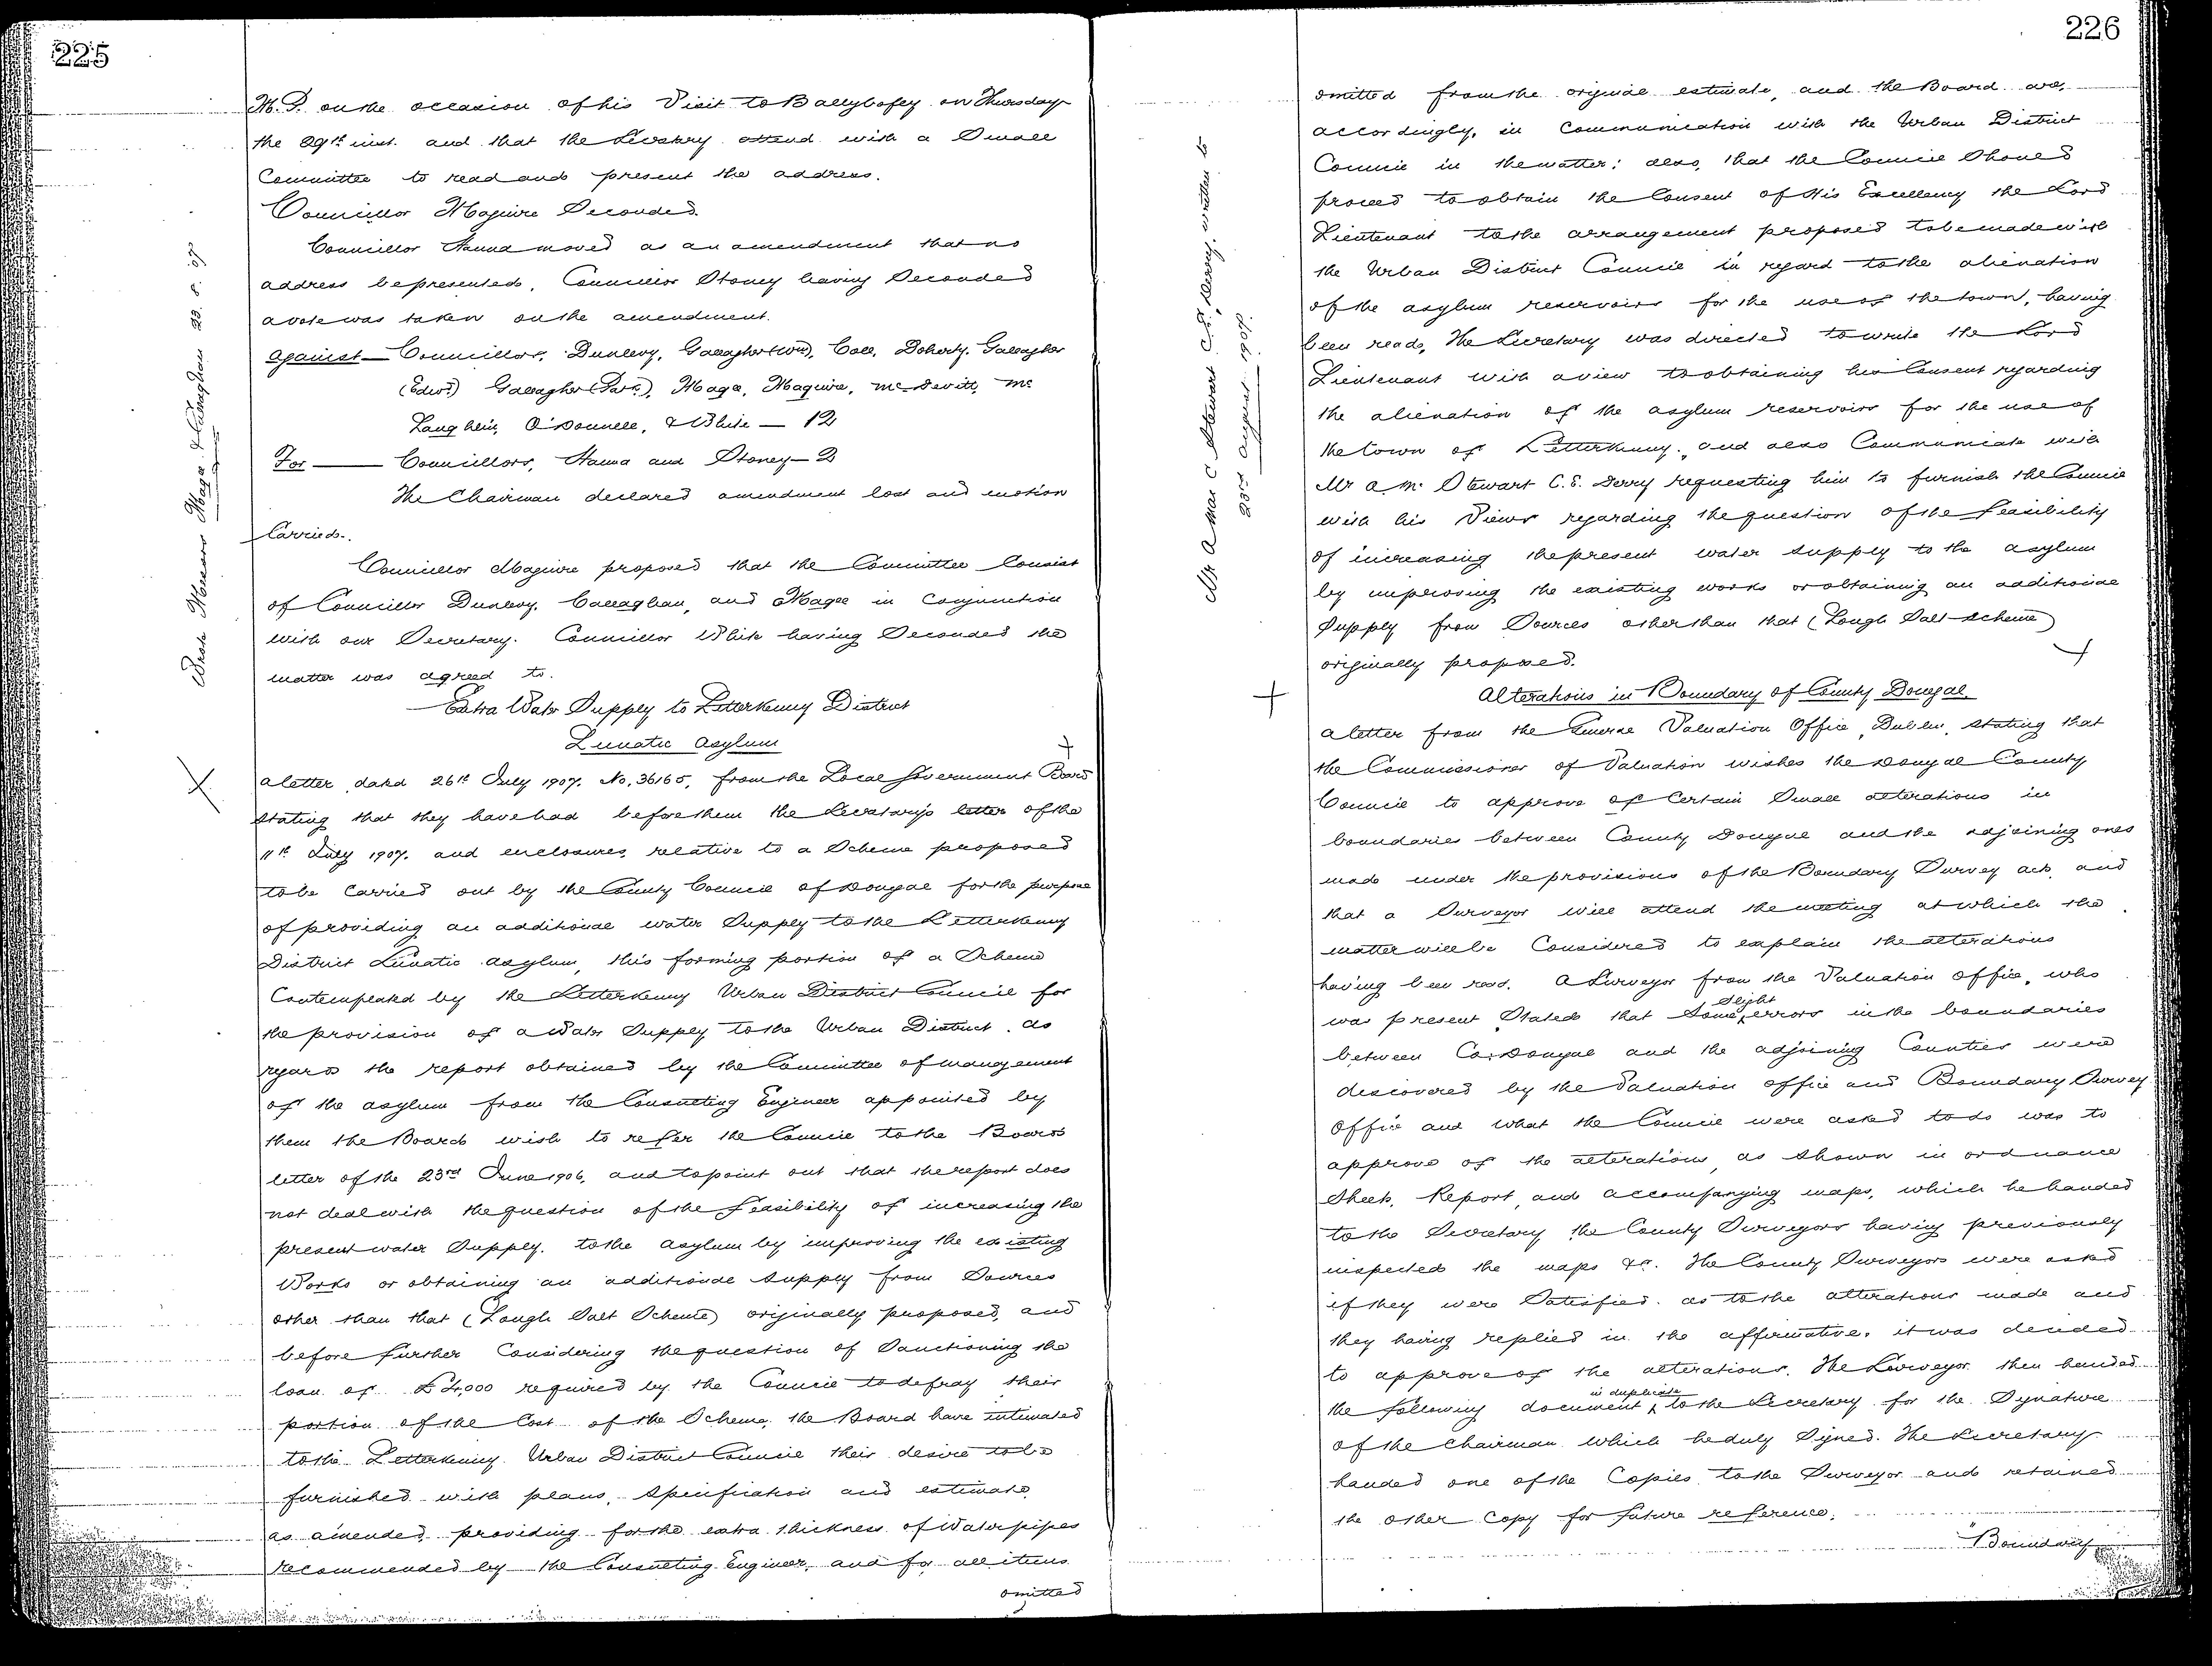 225
M.P. on the occasion of his Visit to Ballybofey on Thursday
the 29th inst. and that the Secretary attend with a Small
Committee to read and present the address.
Councillor Maguire Seconded.
Councillor Hanna moved as an amendment that no
address be presented, Councillor Stoney having Seconded
a vote was taken on the amendment.
Against — Councillors, Dunlevy, Gallagher (Wm), Coll, Doherty, Gallagher
(Edwd) Gallagher (Patk), Magee, Maguire, McDevitt, Mc
Laughlin, O'Donnell, & White — 12
For — Councillors, Hanna and Stoney — 2
The Chairman declared amendment lost and motion
Carried.
Councillor Maguire proposed that the Committee Consist
of Councillor Dunlevy, Callaghan, and Magee in Conjunction
with our Secretary. Councillor White having Seconded the
matter was agreed to.
Wrote Messrs Magee & Callaghan 23. 8. 07
Extra Water Supply to Letterkenny District
Lunatic Asylum
A letter, dated 26th July 1907. No. 36165, from the Local Government Board
stating that they have had before them the Secretary's letter of the
11th July 1907. and enclosures, relative to a Scheme proposed
to be Carried out by the County Council of Donegal for the purpose
of providing an additional water Supply to the Letterkenny
District Lunatic Asylum, this forming portion of a Scheme
Contemplated by the Letterkenny Urban District Council for
the provision of a Water Supply to the Urban District. As
regards the report obtained by the Committee of management
of the asylum from the Consulting Engineer appointed by
them the Board wish to refer the Council to the Board's
letter of the 23rd June 1906, and to point out that the report does
not deal with the question of the feasibility of increasing the
present water Supply. to the Asylum by improving the existing
Works or obtaining an additional supply from Sources
other than that (Lough Salt Scheme) originally proposed, and
before further Considering the question of Sanctioning the
loan of £4,000 required by the Council to defray their
portion of the Cost of the Scheme, the Board have intimated
to the Letterkenny Urban District Council their desire to be
furnished with plans, specification and estimate
as amended, providing for the extra thickness of Waterpipes
recommended by the Consulting Engineer, and for all items
omitted
226
omitted from the original estimate, and the Board are,
accordingly, in Communication with the Urban District
Council in the matter; also, that the Council Should
proceed to obtain the Consent of His Excellency the Lord
Lieutenant to the arrangement proposed to be made with
the Urban District Council in regard to the alienation
of the asylum reservoirs for the use of the town, having
been read, The Secretary was directed to write the Lord
Lieutenant with a view to obtaining his Consent regarding
the alienation of the asylum reservoirs for the use of
the town of Letterkenny, and also Communicate with
Mr A. Mc Stewart C.E. Derry requesting him to furnish the Council
with his Views regarding the question of the feasibility
of increasing the present water supply to the asylum
by improving the existing works or obtaining an additional
Supply from Sources other than that (Lough Salt Scheme)
originally proposed.
Mr A Mac C Stewart C.E., Derry, written to
23rd August 1907.
Alterations in Boundary of County Donegal
A letter from the General Valuation Office, Dublin, stating that
the Commissioner of Valuation wishes the Donegal County
Council to approve of Certain Small alterations in
boundaries between County Donegal and the adjoining ones
made under the provisions of the Boundary Survey Act, and
that a Surveyor will attend the meeting at which the
matter will be Considered to explain the alterations
having been read. A Surveyor from the Valuation Office, who
was present Stated that some slight errors in the boundaries
between Co. Donegal and the adjoining Counties were
discovered by the Valuation Office and Boundary Survey
Office and what the Council were asked to do was to
approve of the alterations, as shown in ordnance
Sheets, Report, and accompanying maps, which he handed
to the Secretary the County Surveyors having previously
inspected the maps &c. The County Surveyors were asked
if they were Satisfied as to the alterations made and
they having replied in the affirmative, it was decided
to approve of the alterations. The Surveyor then handed
the following document in duplicate to the Secretary for the Signature
of the Chairman which he duly Signed. The Secretary
handed one of the Copies to the Surveyor and retained
the other Copy for future reference.
"Boundary